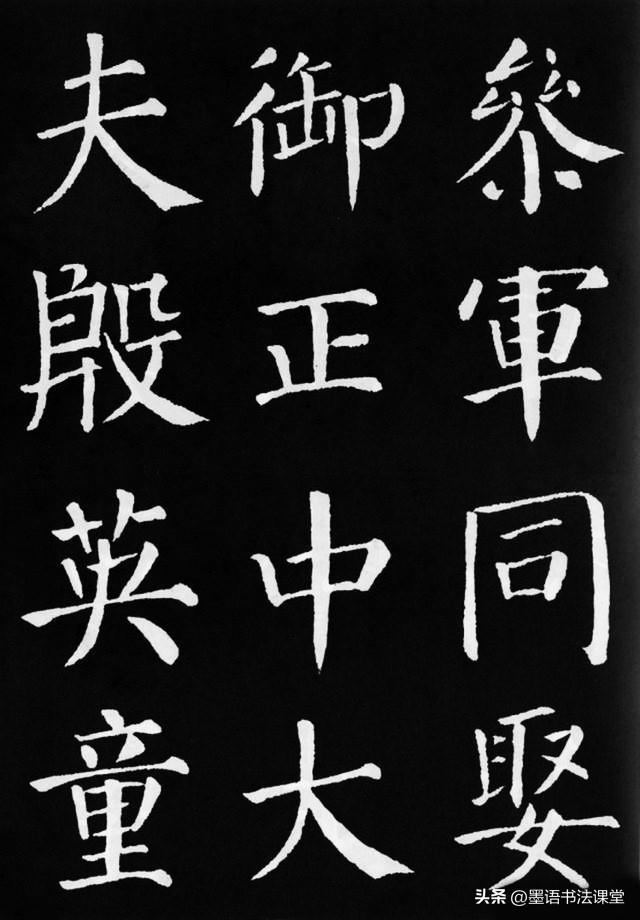 參軍同娶
御正中大
夫殷英童
头条 @墨语书法课堂